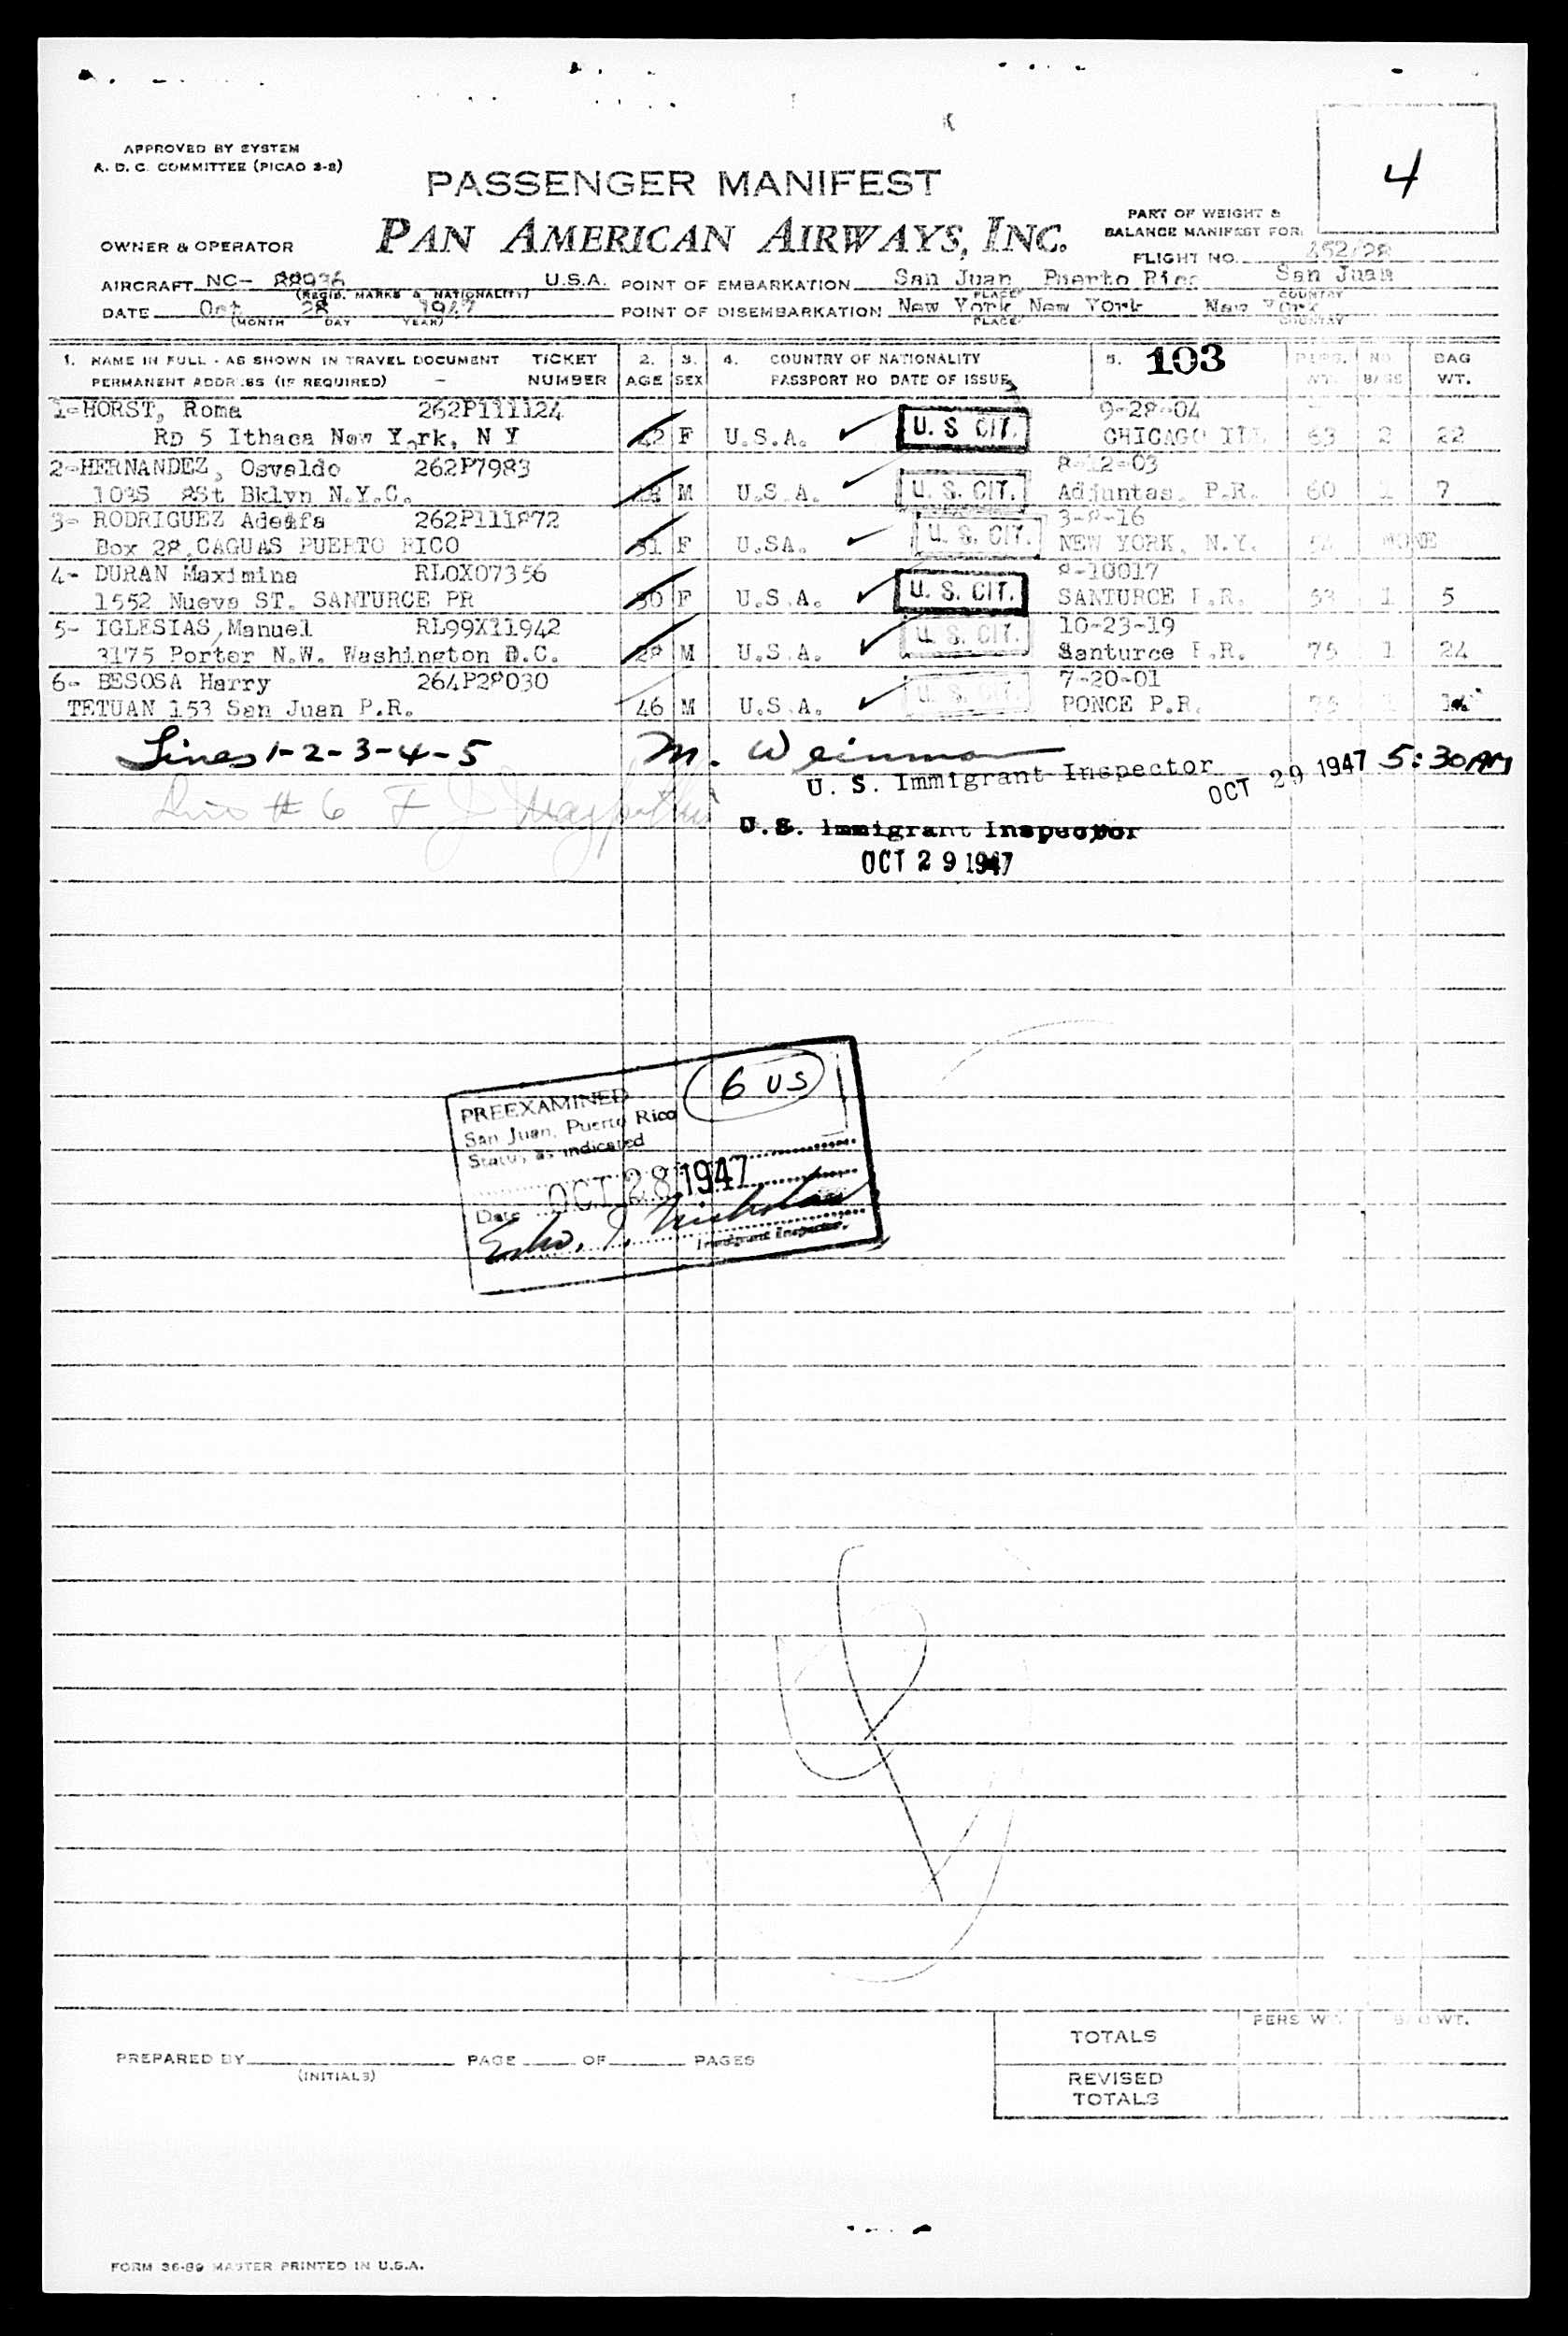 4
APPROVED BY SYSTEM
A. D. C. COMMITTEE (PICAO 2-2)
PASSENGER MANIFEST
PAN AMERICAN AIRWAYS, INC.
PART OF WEIGHT &
BALANCE MANIFEST FOR:
OWNER & OPERATOR
FLIGHT NO. 452/28
AIRCRAFT NC- U.S.A. POINT OF EMBARKATION San Juan Puerto Rico San Juan
(REGIS. MARKS & NATIONALITY) PLACE COUNTRY
DATE Oct 28 1947 POINT OF DISEMBARKATION New York New York New York
(MONTH DAY YEAR) PLACE COUNTRY
1. NAME IN FULL - AS SHOWN IN TRAVEL DOCUMENT TICKET 2. 3. 4. COUNTRY OF NATIONALITY 5. 103 PERS. NO. BAG
PERMANENT ADDRESS (IF REQUIRED) - NUMBER AGE SEX PASSPORT NO DATE OF ISSUE WT. BAGS WT.
1-HORST, Roma 262P111124 9-28-04
RD 5 Ithaca New Y rk, N Y 42 F U.S.A. U. S CIT. CHICAGO ILL 63 2 22
2-HERNANDEZ, Osvaldo 262P7983 8-12-03
St Bklyn N.Y.C. M U.S.A. U. S. CIT. Adjuntas, P.R. 60 1 7
3- RODRIGUEZ 262P111872 3-8-16
Box 28,CAGUAS PUERTO RICO 31 F U.SA. U. S. CIT. NEW YORK, N.Y. 54 NONE
4- DURAN Maximina RLOX07356 8-10017
1552 Nueva ST. SANTURCE PR 30 F U.S.A. U. S. CIT. SANTURCE P.R. 53 1 5
5- IGLESIAS,Manuel RL99X11942 10-23-19
3175 Porter N.W. Washington D.C. 28 M U.S.A. U. S. CIT. Santurce P.R. 75 1 24
6- BESOSA Harry 264P28030 7-20-01
TETUAN 153 San Juan P.R. 46 M U.S.A. U. S. CIT. PONCE P.R. 75 1
Lines 1-2-3-4-5 M. Weinman
U. S. Immigrant Inspector OCT 29 1947 5:30AM
# 6 F J
U.S. Immigrant Inspector
OCT 29 1947
6 US
PREEXAMINED
San Juan, Puerto Rico
Status as indicated
Date OCT 28 1947
Immigrant Inspector.
PERS WT. BAG WT.
TOTALS
PREPARED BY PAGE OF PAGES
(INITIALS)
REVISED
TOTALS
FORM 36-89 MASTER PRINTED IN U.S.A.